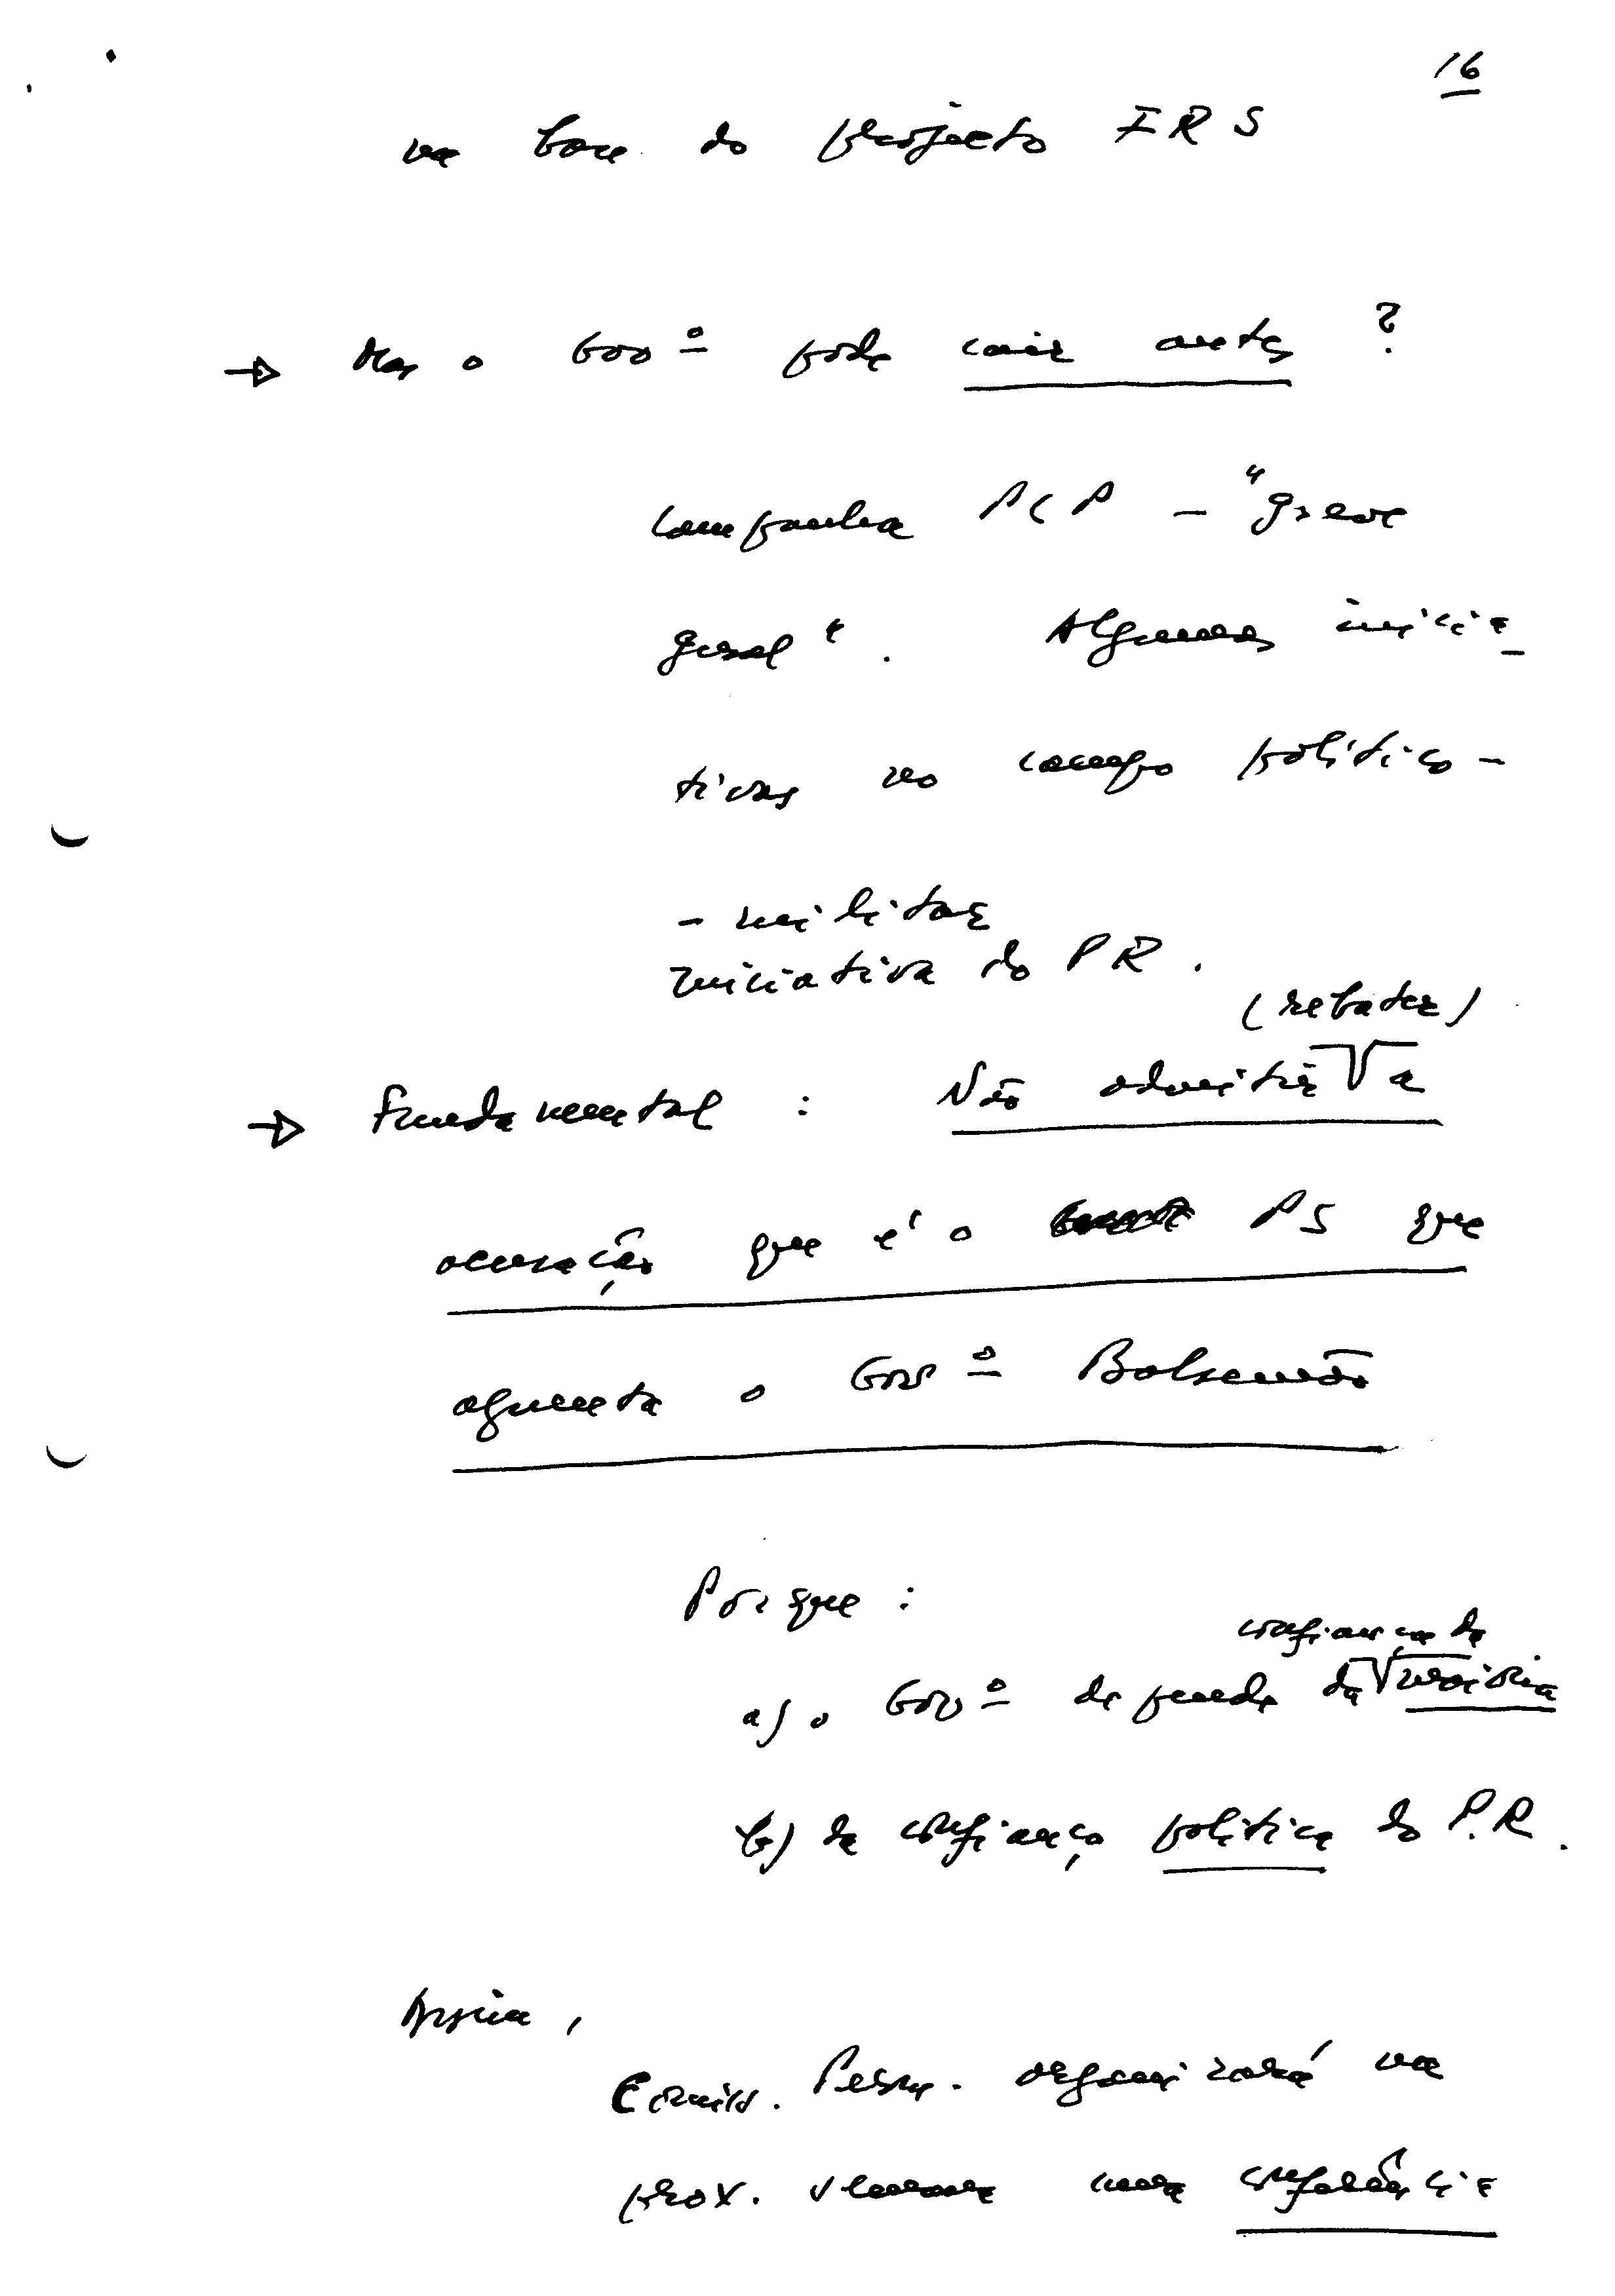 16
na base do projecto FRS
→ Mas o Govº pode cair antes ?
Campanha PCP – "greve
geral". Algumas inicia-
tivas no campo político-
- militar
Iniciativa do PR.
(rebater)
→ Fundamental : Não admitir a
acusação que é o PS que
aguenta o Govº Balsemão
Porque :
confiança da
a) o Govº depende da maioria
b) da confiança política do P.R.
Assim,
Comiss. Perm. organizará na
prox. semana uma conferência